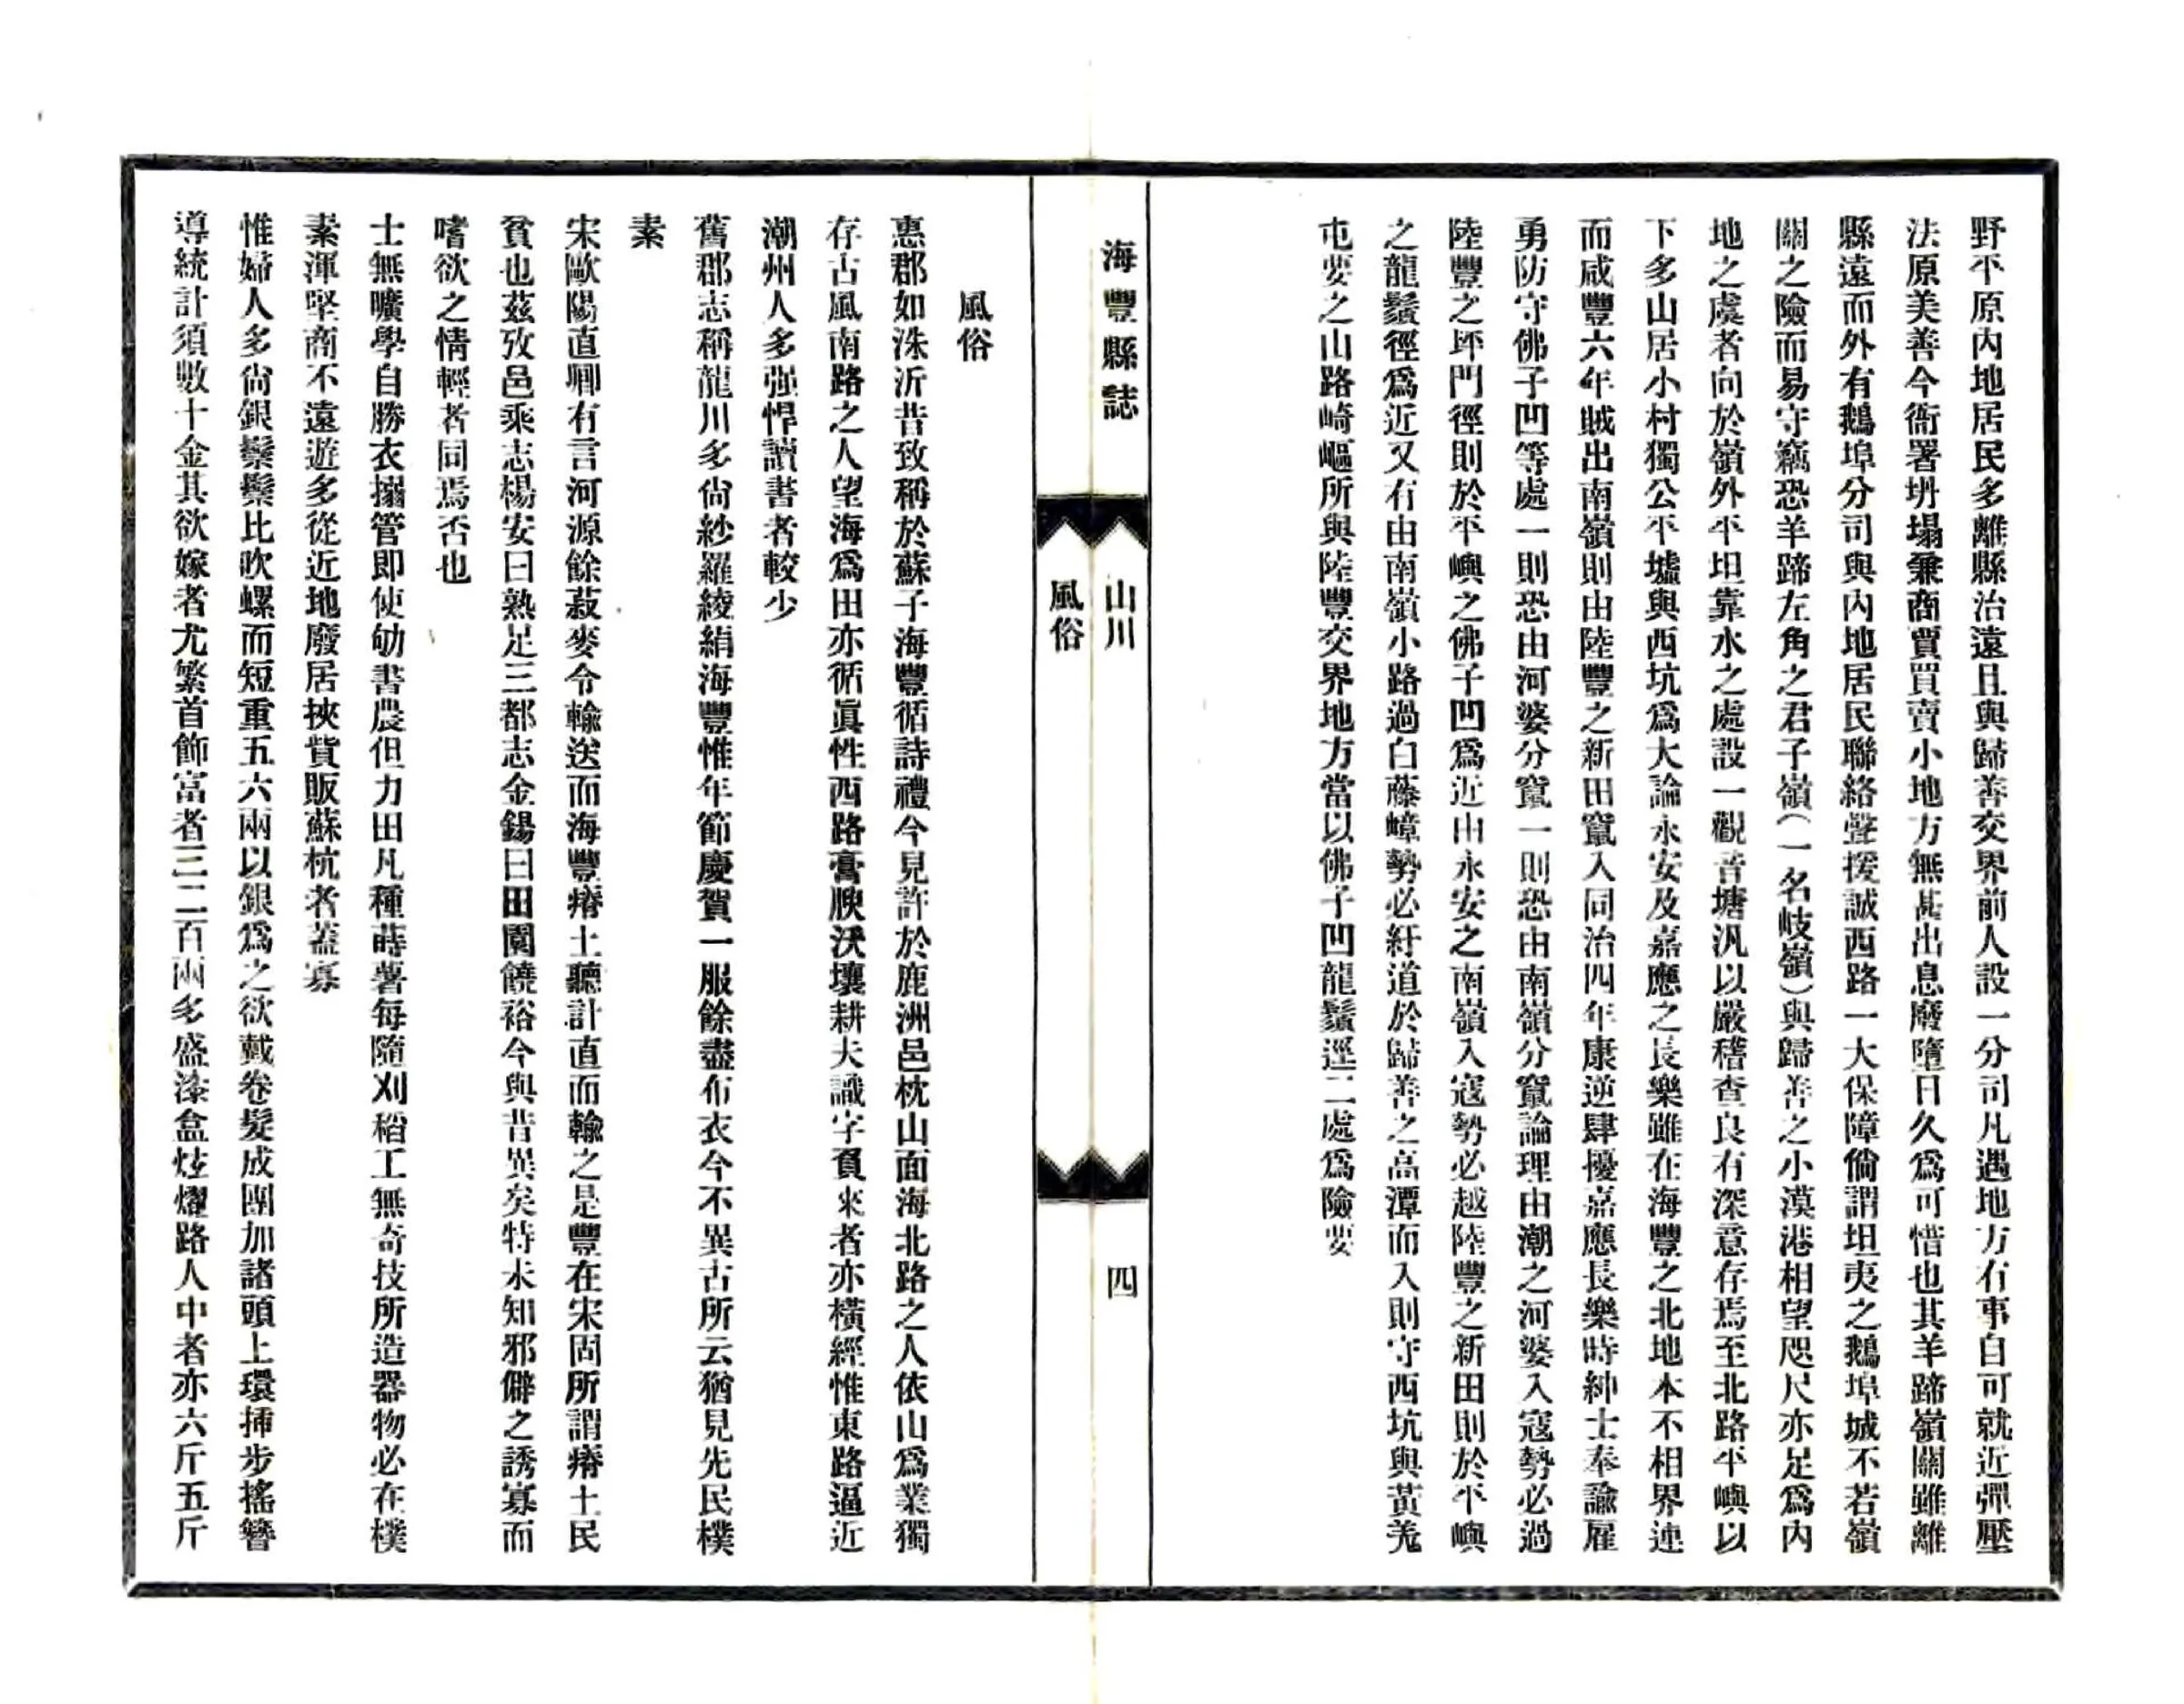 野平原內地居民多離縣治遠且與歸善交界前人設一分司凡遇地方有事自可就近彈壓
法原美善今衙署坍塌兼商賈買賣小地方無甚出息廢墮日久爲可惜也其羊蹄嶺關雖離
縣遠而外有鵝埠分司與內地居民聯絡聲援誠西路一大保障倘謂坦夷之鵝埠城不若嶺
關之險而易守竊恐羊蹄左角之君子嶺(一名岐嶺)與歸善之小漠港相望咫尺亦足爲內
地之虞者向於嶺外平坦靠水之處設一觀音塘汛以嚴稽查良有深意存焉至北路平嶼以
下多山居小村獨公平墟與西坑爲大論永安及嘉應之長樂雖在海豐之北地本不相界連
而咸豐六年賊出南嶺則由陸豐之新田竄入同治四年康逆肆擾嘉應長樂時紳士奉諭雇
勇防守佛子凹等處一則恐由河婆分竄一則恐由南嶺分竄論理由潮之河婆入寇勢必過
陸豐之坪門徑則於平嶼之佛子凹爲近由永安之南嶺入寇勢必越陸豐之新田則於平嶼
之龍鬚徑爲近又有由南嶺小路過白藤嶂勢必紆道於歸善之高潭而入則守西坑與黃羌
屯要之山路崎嶇所與陸豐交界地方當以佛子凹龍鬚逕二處爲險要
海豐縣誌
山川
四
風俗
風俗
惠郡如洙沂昔致稱於蘇子海豐循詩禮今見許於鹿洲邑枕山面海北路之人依山爲業獨
存古風南路之人望海爲田亦循眞性西路膏腴沃壤耕夫識字負來者亦橫經惟東路逼近
潮州人多强悍讀書者較少
舊郡志稱龍川多尙紗羅綾絹海豐惟年節慶賀一服餘盡布衣今不異古所云猶見先民樸
素
宋歐陽直卿有言河源餘菽麥令輸送而海豐瘠土聽計直而輸之是豐在宋固所謂瘠土民
貧也茲攷邑乘志楊安曰熟足三都志金錫曰田園饒裕今與昔異矣特未知邪僻之誘寡而
嗜欲之情輕者同焉否也
士無曠學自勝衣搦管即使劬書農但力田凡種蒔薯每隨刈稻工無奇技所造器物必在樸
素渾堅商不遠遊多從近地廢居挾貲販蘇杭者蓋寡
惟婦人多尙銀鬏鬏比吹螺而短重五六兩以銀爲之欲戴卷髮成團加諸頭上環揷步搖簪
導統計須數十金其欲嫁者尤繁首飾富者三二百兩多盛漆盒炫燿路人中者亦六斤五斤